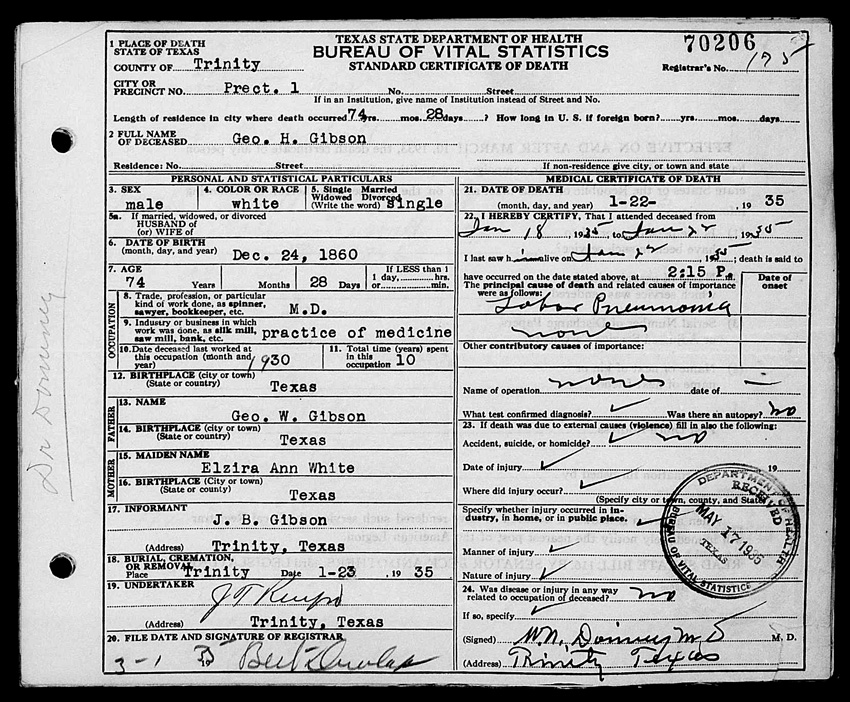 TEXAS STATE DEPARTMENT OF HEALTH
BUREAU OF VITAL STATISTICS
STANDARD CERTIFICATE OF DEATH
70206
Registrar's No. 175
1 PLACE OF DEATH
STATE OF TEXAS
COUNTY OF Trinity
CITY OR
PRECINCT NO. Prect. 1 No. Street
If in an Institution, give name of Institution instead of Street and No.
Length of residence in city where death occurred 74 yrs. mos. 28 days ? How long in U. S. if foreign born? yrs. mos. days
2 FULL NAME
OF DECEASED Geo. H. Gibson
Residence: No. Street If non-residence give city, or town and state
PERSONAL AND STATISTICAL PARTICULARS
3. SEX
male
4. COLOR OR RACE
white
5. Single Married
Widowed Divorced
(Write the word) single
5a. If married, widowed, or divorced
HUSBAND of
(or) WIFE of
6. DATE OF BIRTH
(month, day, and year) Dec. 24, 1860
7. AGE
74 Years Months 28 Days
If LESS than 1
1 day, hrs.
or min.
OCCUPATION
8. Trade, profession, or particular
kind of work done, as spinner,
sawyer, bookkeeper, etc. M.D.
9. Industry or business in which
work was done, as silk mill,
saw mill, bank, etc. practice of medicine
10. Date deceased last worked at
this occupation (month and
year) 1930
11. Total time (years) spent
in this
occupation 10
12. BIRTHPLACE (city or town)
(State or country) Texas
FATHER
13. NAME
Geo. W. Gibson
14. BIRTHPLACE (city or town)
(State or country) Texas
MOTHER
15. MAIDEN NAME
Elzira Ann White
16. BIRTHPLACE (City or town)
(State or country) Texas
17. INFORMANT
J. B. Gibson
(Address) Trinity, Texas
18. BURIAL, CREMATION,
OR REMOVAL
Place Trinity Date 1-23 , 19 35
19. UNDERTAKER
(Address) Trinity, Texas
20. FILE DATE AND SIGNATURE OF REGISTRAR
3-1 35 Bert Dunlap
MEDICAL CERTIFICATE OF DEATH
21. DATE OF DEATH
(month, day, and year) 1-22- , 19 35
22. I HEREBY CERTIFY, That I attended deceased from
Jan 18 1935, to Jan 22 1935
I last saw h im alive on Jan 22 1935; death is said to
have occurred on the date stated above, at 2:15 P m.
The principal cause of death and related causes of importance
were as follows:
Date of
onset
Lobar Pneumonia
none
Other contributory causes of importance:
none
Name of operation date of
What test confirmed diagnosis? Was there an autopsy? no
23. If death was due to external causes (violence) fill in also the following:
Accident, suicide, or homicide? no
Date of injury 19
Where did injury occur?
(Specify city or town, county, and State)
Specify whether injury occurred in in-
dustry, in home, or in public place.
Manner of injury
Nature of injury
24. Was disease or injury in any way
related to occupation of deceased? no
If so, specify
(Signed) M. D.
(Address) Trinity Texas
DEPARTMENT OF HEALTH
RECEIVED
MAY 17 1935
TEXAS
BUREAU OF VITAL STATISTICS